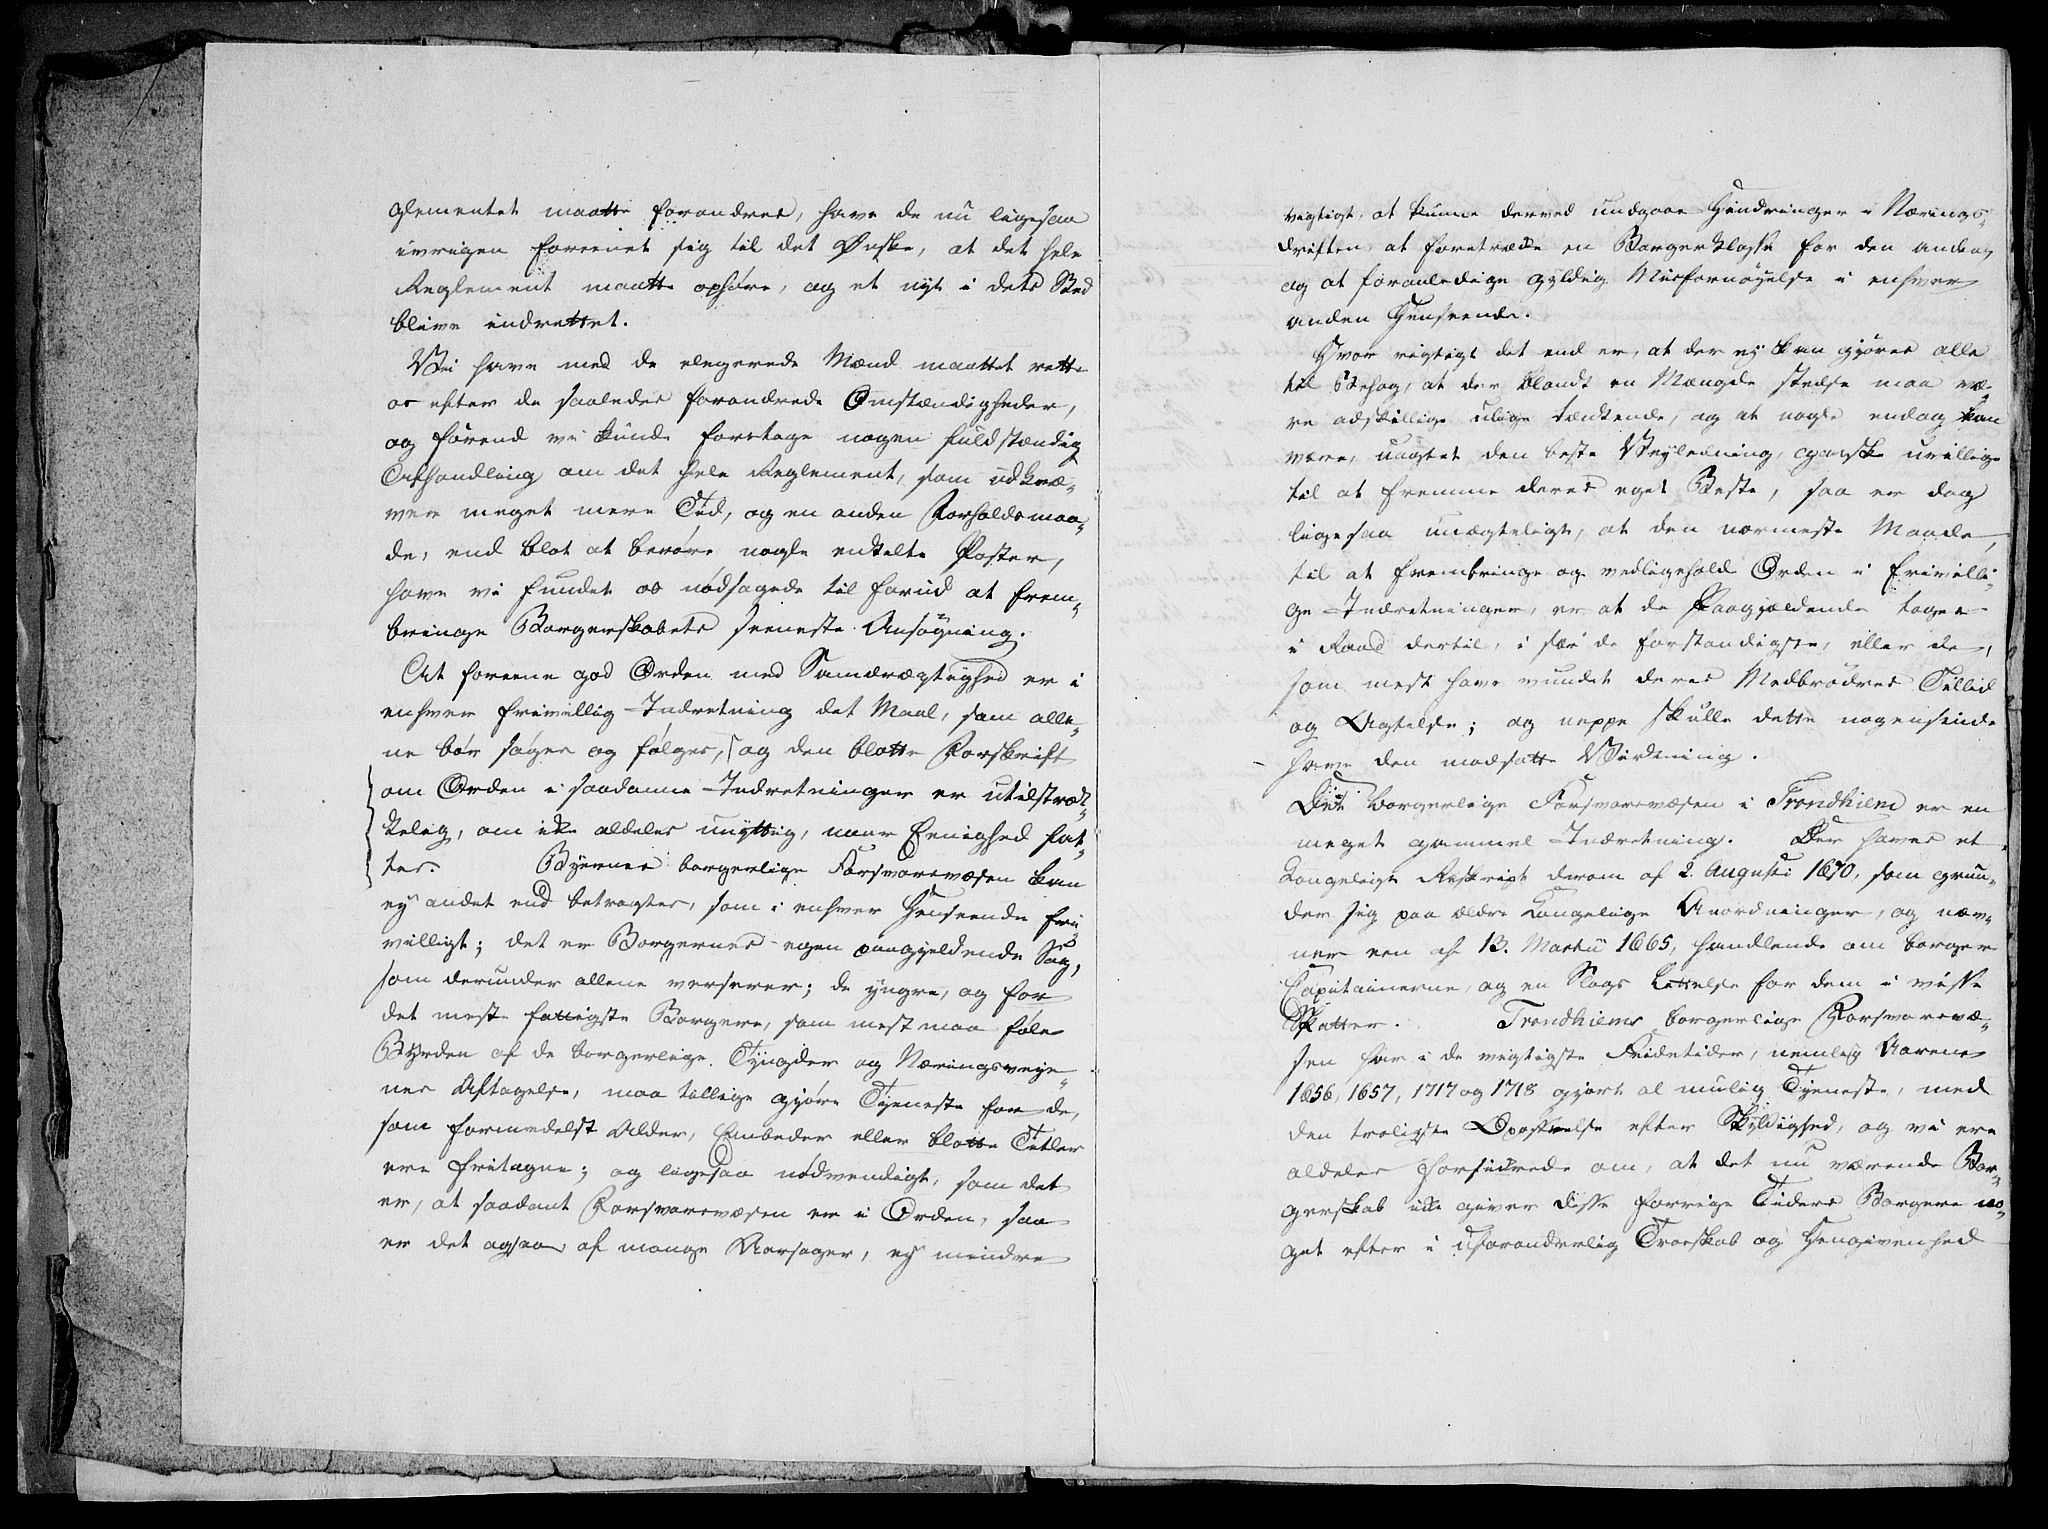 glementet maatte forandres, have de nu ligesaa
ivrigen foreenet sig til det Ønske, at det hele
Reglement maatte ophøre, og et nyt i dets Sted
blive indrettet.
Vi have med de elegerede Mænd maattet rette
os efter de saaledes forandrede Omstændigheder,
og førend vi kunde foretage nogen fuldstændig
Afhandling om det hele Reglement, som udkræ-
ver meget mere Tid, og en anden Forholdsmaa-
de, end blot at berøre nogle enkelte Poster,
have vi fundet os nødsagede til forud at frem-
bringe Borgerskabets seeneste Ansøgning.
At foreene god Orden med Samdrægtighed er i
enhver frivillig Indretning det Maal, som alle-
ne bør søges og følges, og den blotte Forskrift
om Orden i saadanne Indretninger er utilstræk-
kelig, om ikke aldeles unyttig, naar Eenighed fat-
tes. Byernes borgerlige Forsvarsvæsen kan
ey andet end betragtes, som i enhver Henseende fri-
villigt; det er Borgernes egen paagjeldende Sag,
som derunder allene verserer; de yngre, og for
det meste fattigste Borgere, som mest maa føle
Byrden af de borgerlige Tyngder og Næringsveye-
nes Aftagelse, maa tillige gjøre Tjeneste for de,
som formedelst Alder, Embeder eller blotte Titler
ere fritagne; og ligesaa nødvendigt, som det
er, at saadant Forsvarsvæsen er i Orden, saa
er det ogsaa af mange Aarsager, ey mindre
vigtigt, at kunne derved undgaae Hindringer i Nærings-
driften, at foretrække en Borger Klasse for den anden,
og at foranledige gyldig Misfornøyelse i enhver
anden Henseende.
Hvor rigtigt det end er, at der ey kan gjøres alle
til Behag, at der blandt en Mængde stedse maa væ-
re adskillige ulige tænkende, og at nogle endog kan
være, uagtet den beste Veyledning, ganske uvillige
til at fremme deres eget Beste, saa er dog
ligesaa unægteligt, at den nærmeste Maade,
til at frembringe og vedligeholde Orden i frivilli-
ge Indretninger, er at de Paagjældende tages
i Raad dertil, i sær de forstandigste, eller de,
som mest have vundet deres Medbrødres Tillid
og Agtelse; og neppe skulle dette nogensinde
have den modsatte Virkning.
Det borgerlige Forsvarsvæsen i Trondhiem er en
meget gammel Indretning. Der haves et
Kongeligt Reskript derom af 2. Augusti 1670, som grun-
der sig paa ældre Kongelige Anordninger, og næv-
ner een af 13. Martii 1665, handlende om borger
Capitainerne, og en Slags Lettelse for dem i visse
Skatter. Trondhiems borgerlige Forsvarsvæ-
sen har i de vigtigste Feidetider, nemlig Aarene
1656, 1657, 1717 og 1718 gjort al mulig Tjeneste, med
den troligste Opofrelse efter Skyldighed, og vi ere
aldeles forsikrede om, at det nu værende Bor-
gerskab ikke giver disse forrige Tiders Borgere no-
get efter i uforanderlig Troeskab og Hengivenhed